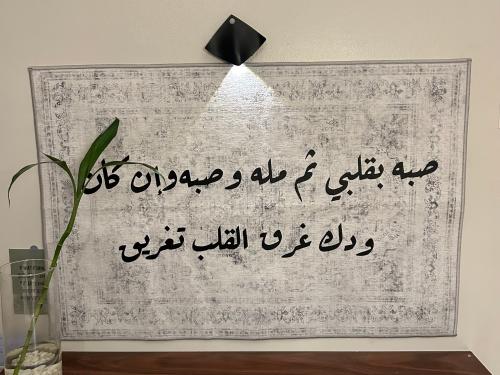 صبه بقلبي ثم مله وصبه وإن كان
ودك غرق القلب تغريق